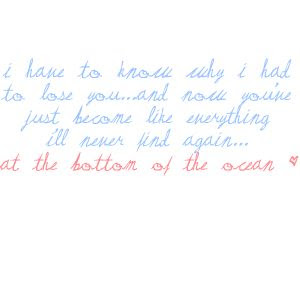 i have to know why i had
to lose you...and now you've
just become like everything
i'll never find again...
at the bottom of the ocean ♥